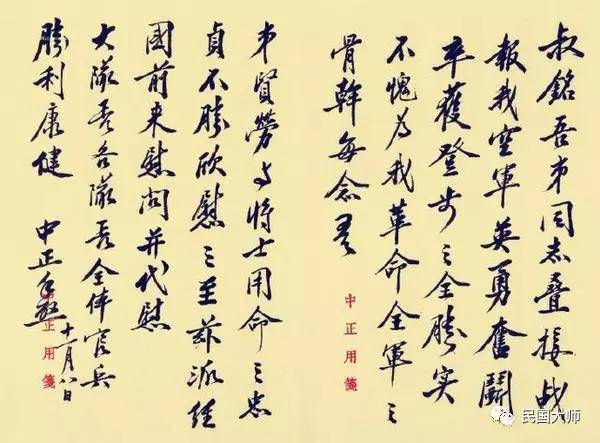 叔銘吾弟同志疊接战
報我空軍英勇奮鬭
卒獲登步之全勝实
不愧为我革命全軍之
骨幹每念吾
中正用箋
弟賢勞与将士用命之忠
貞不勝欣慰之至茲派经
國前来慰问并代慰
大隊長各隊長全体官兵
勝利康健
中正手啟
十一月八日
中正用箋
民国大师